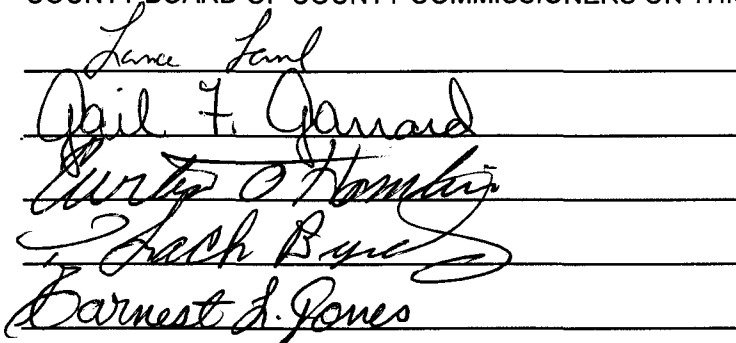 COUNTY BOARD OF COUNTY COMMISSIONERS ON THIS
Lance
Gail F. Garrard
Curtis O
Zach Byrd
Earnest L. Jones